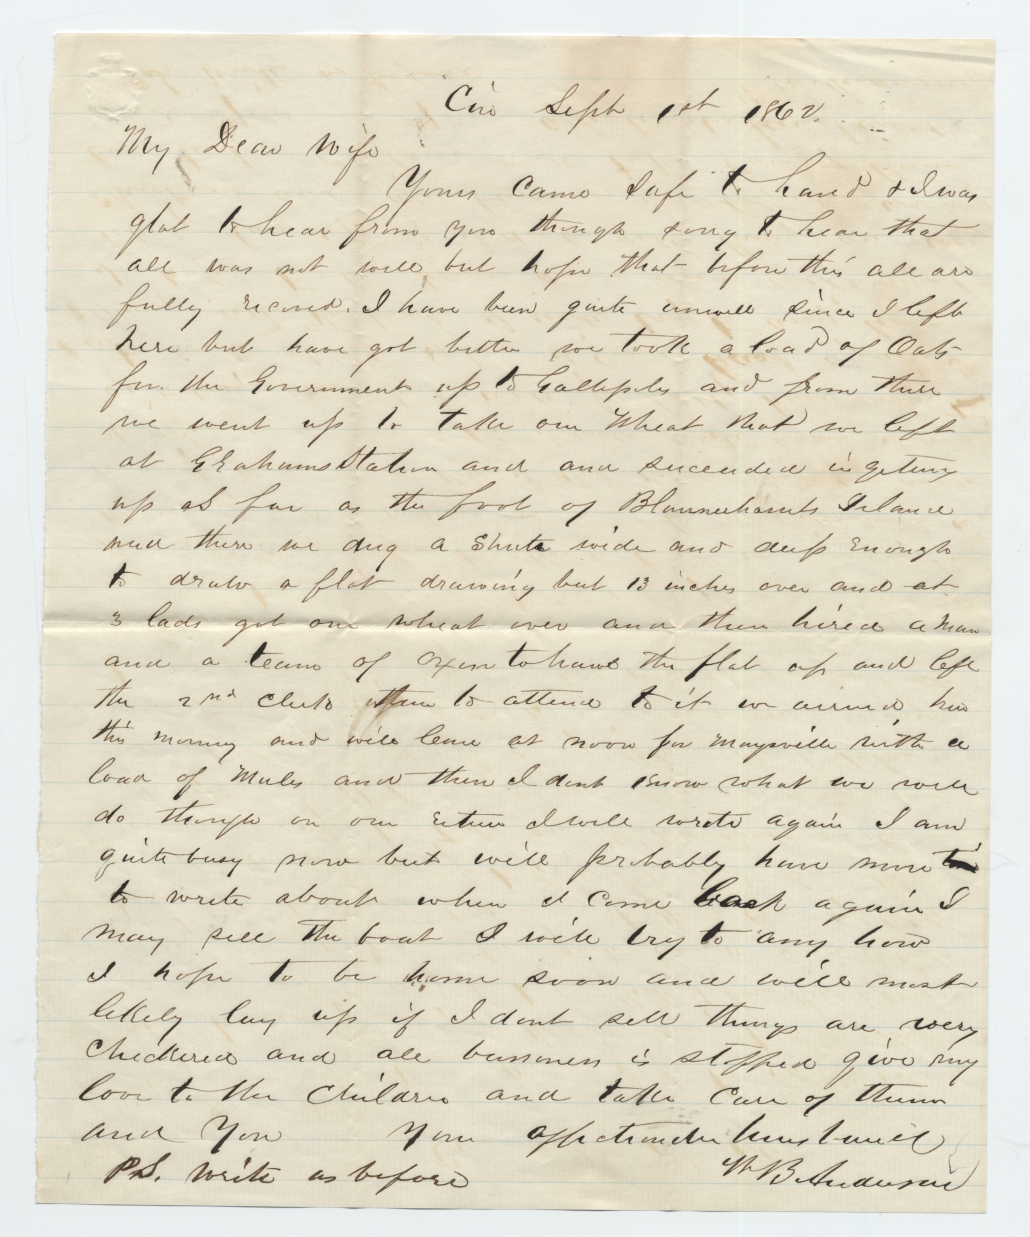 Cin Sept 1st 1862.
My Dear Wife
Yours came safe to hand & I was
glat to hear from you though sorry to hear that
all was not well but hope that before this all are
fully recoved. I have been quite unwell since I left
here but have got better we took a load of Oats
for the Government up to Gallipolis and from there
we went up to take our Wheat that we left
at Grahams Station and and succeeded in geting
up as far as the foot of Blannerhassets Island
and there we dug a Shute wide and deep Enough
to draw a flat drawing but 13 inches over and at
3 lads got our wheat over and then hired a Man
and a team of oxen to haul the flat up and left
the 2nd Clerk to attend to it we arrived here
this morning and will leave at noon for Maysville with a
load of Mules and then I dont Know what we will
do though on our return I will write again I am
quite busy now but will probably have more
to write about when I come back again I
may sell the boat I will try to any how
I hope to be home soon and will most
likely lay up if I dont sell things are very
Checkered and all bussness is stopped give my
love to the Children and take care of them
and You Your affectionate husband
P.S. Write as before Wm B. Anderson